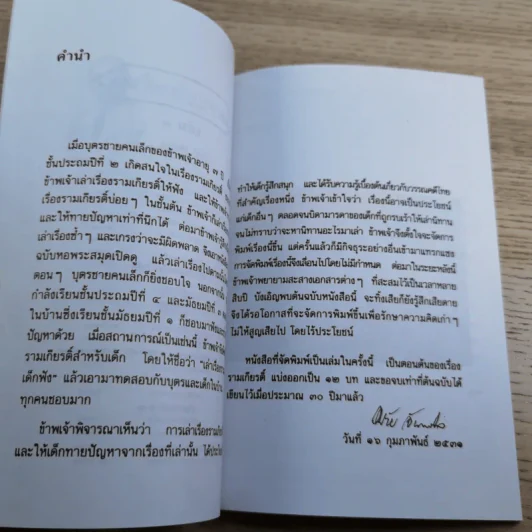 คำนำ
เมื่อบุตรชายคนเล็กของข้าพเจ้าอายุ ๗ ปี
ชั้นประถมปีที่ ๒ เกิดสนใจในเรื่องรามเกียรติ์
ข้าพเจ้าเล่าเรื่องรามเกียรติ์ให้ฟัง และให้
รามเกียรติ์บ่อยๆ ในชั้นต้น ข้าพเจ้าก็
และให้ทายปัญหาเท่าที่นึกได้ ต่อมาข้าพเจ้า
เล่าเรื่องซ้ำๆ และเกรงว่าจะมีผิดพลาด จึง
ฉบับหอพระสมุดเปิดดู แล้วเล่าเรื่องไป
ตอนๆ บุตรชายคนเล็กก็ยิ่งชอบใจ นอกจาก
กำลังเรียนชั้นประถมปีที่ ๔ และมัธยมปีที่
ในบ้านซึ่งเรียนชั้นมัธยมปีที่ ๑ ก็ชอบมาฟัง
ปัญหาด้วย เมื่อสถานการณ์เป็นเช่นนี้ ข้าพเจ้า
รามเกียรติ์สำหรับเด็ก โดยให้ชื่อว่า "เล่าเรื่อง
เด็กฟัง" แล้วเอามาทดสอบกับบุตรและเด็กใน
ทุกคนชอบมาก
ข้าพเจ้าพิจารณาเห็นว่า การเล่าเรื่อง
และให้เด็กทายปัญหาจากเรื่องที่เล่านั้น ได้
ทำให้เด็กรู้สึกสนุก และได้รับความรู้เบื้องต้นเกี่ยวกับวรรณคดีไทย
ที่สำคัญเรื่องหนึ่ง ข้าพเจ้าเข้าใจว่า เรื่องนี้อาจเป็นประโยชน์
แก่เด็กอื่นๆ ตลอดจนบิดามารดาของเด็กที่ถูกรบเร้าให้เล่านิทาน
จนไม่ทราบว่าจะหานิทานอะไรมาเล่า ข้าพเจ้าจึงตั้งใจจะจัดการ
พิมพ์เรื่องนี้ขึ้น แต่ครั้นแล้วก็มีกิจธุระอย่างอื่นเข้ามาแทรกแซง
การจัดพิมพ์เรื่องนี้จึงเลื่อนไปโดยไม่มีกำหนด ต่อมาในระยะหลังนี้
ข้าพเจ้าพยายามสะสางเอกสารต่างๆ ที่สะสมไว้เป็นเวลาหลาย
สิบปี บังเอิญพบต้นฉบับหนังสือนี้ จะทิ้งเสียก็ยังรู้สึกเสียดาย
จึงได้รอโอกาสที่จะจัดการพิมพ์ขึ้นเพื่อรักษาความคิดเก่าๆ
ไม่ให้สูญเสียไป โดยไร้ประโยชน์
หนังสือที่จัดพิมพ์เป็นเล่มในครั้งนี้ เป็นตอนต้นของเรื่อง
รามเกียรติ์ แบ่งออกเป็น ๑๒ บท และขอจบเท่าที่ต้นฉบับได้
เขียนไว้เมื่อประมาณ ๓๐ ปีมาแล้ว
วันที่ ๑๖ กุมภาพันธ์ ๒๕๓๑